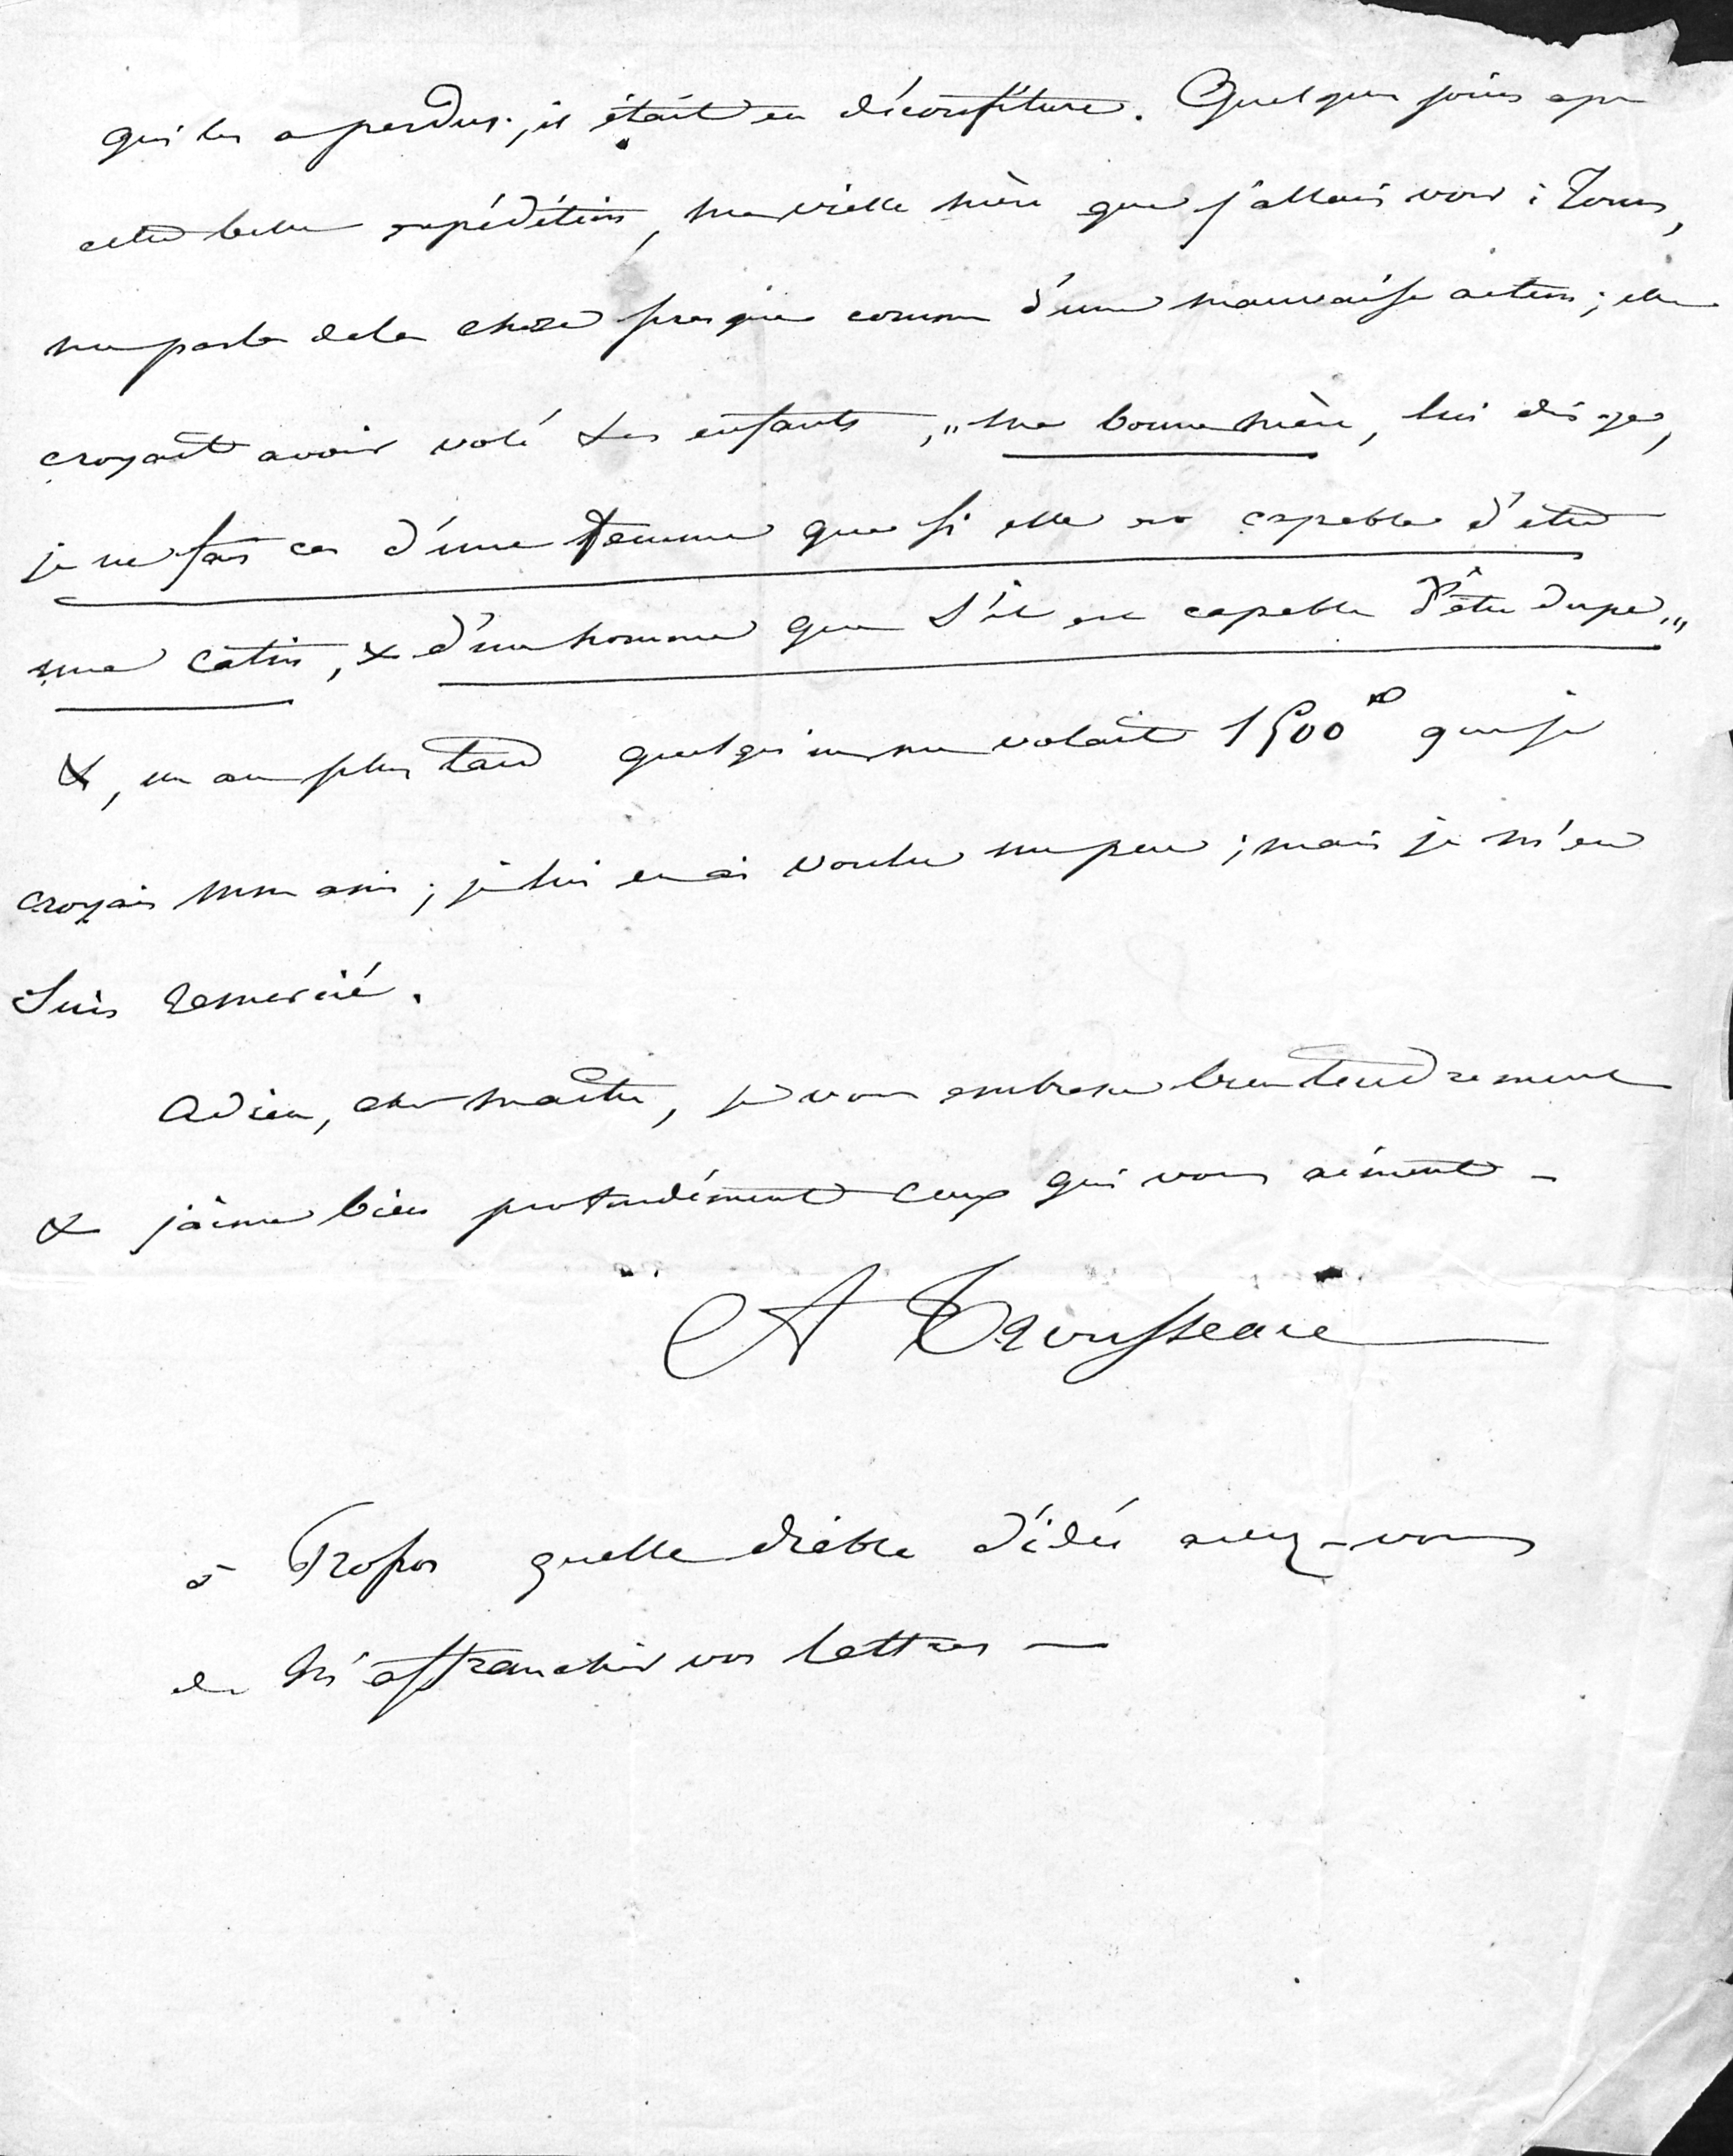 qui les a perdus ; il était en déconfiture. Quelques jours apr
cette belle expédition, ma vielle mère que j'allais voir à Tours,
me parla de la chose presque comme d'une mauvaise action ; elle
croyait avoir volé ses enfants, „ ma bonne mère, lui dis-je,
je ne fais cas d'une femme que si elle est capable d'être
une catin, & d'un homme que s'il est capable d'être dupe „
&, un an plus tard quelqu'un me volait 1500 que je
croyais mon ami ; je lui en ai voulu un peu ; mais je m'en
suis remercié.
adieu, cher maître, je vous embrasse bien tendrement
& j'aime bien profondément ceux qui vous aiment –
A Trousseau
à Propos quelle diable d'idée avez-vous
de m'affranchir vos lettres —